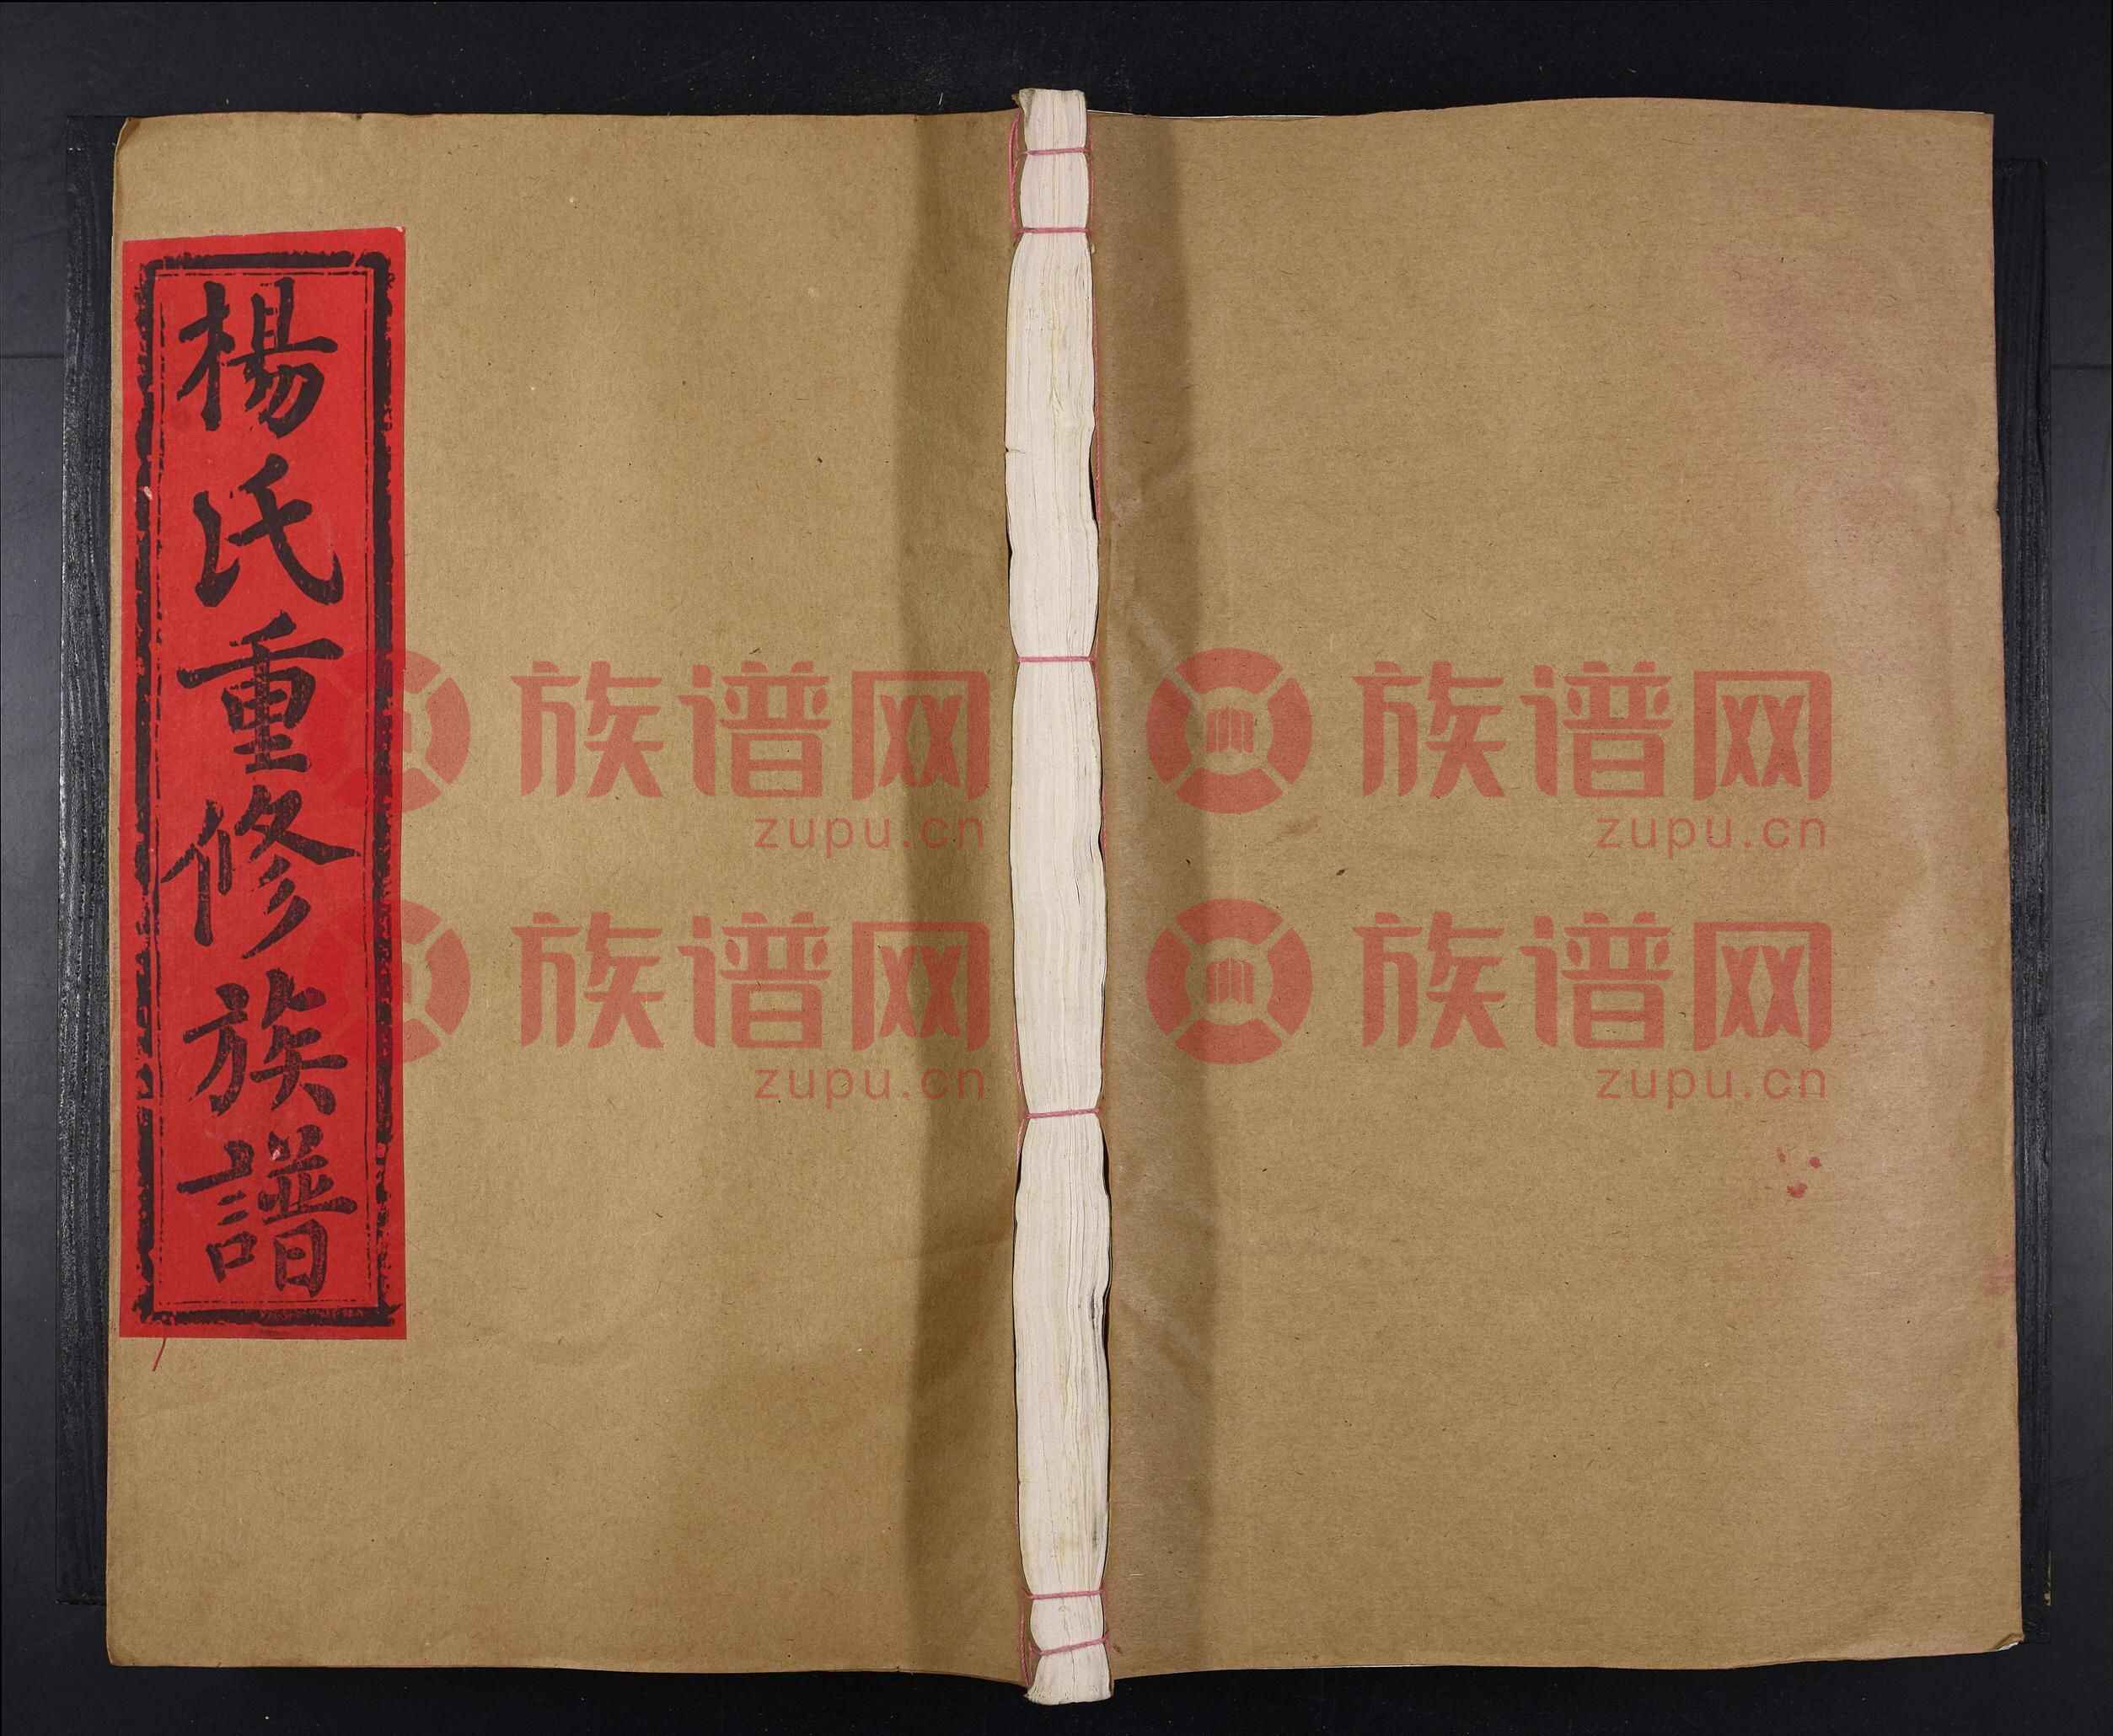 楊氏重修族譜
族谱网
zupu.cn
族谱网
zupu.cn
族谱网
zupu.cn
族谱网
zupu.cn